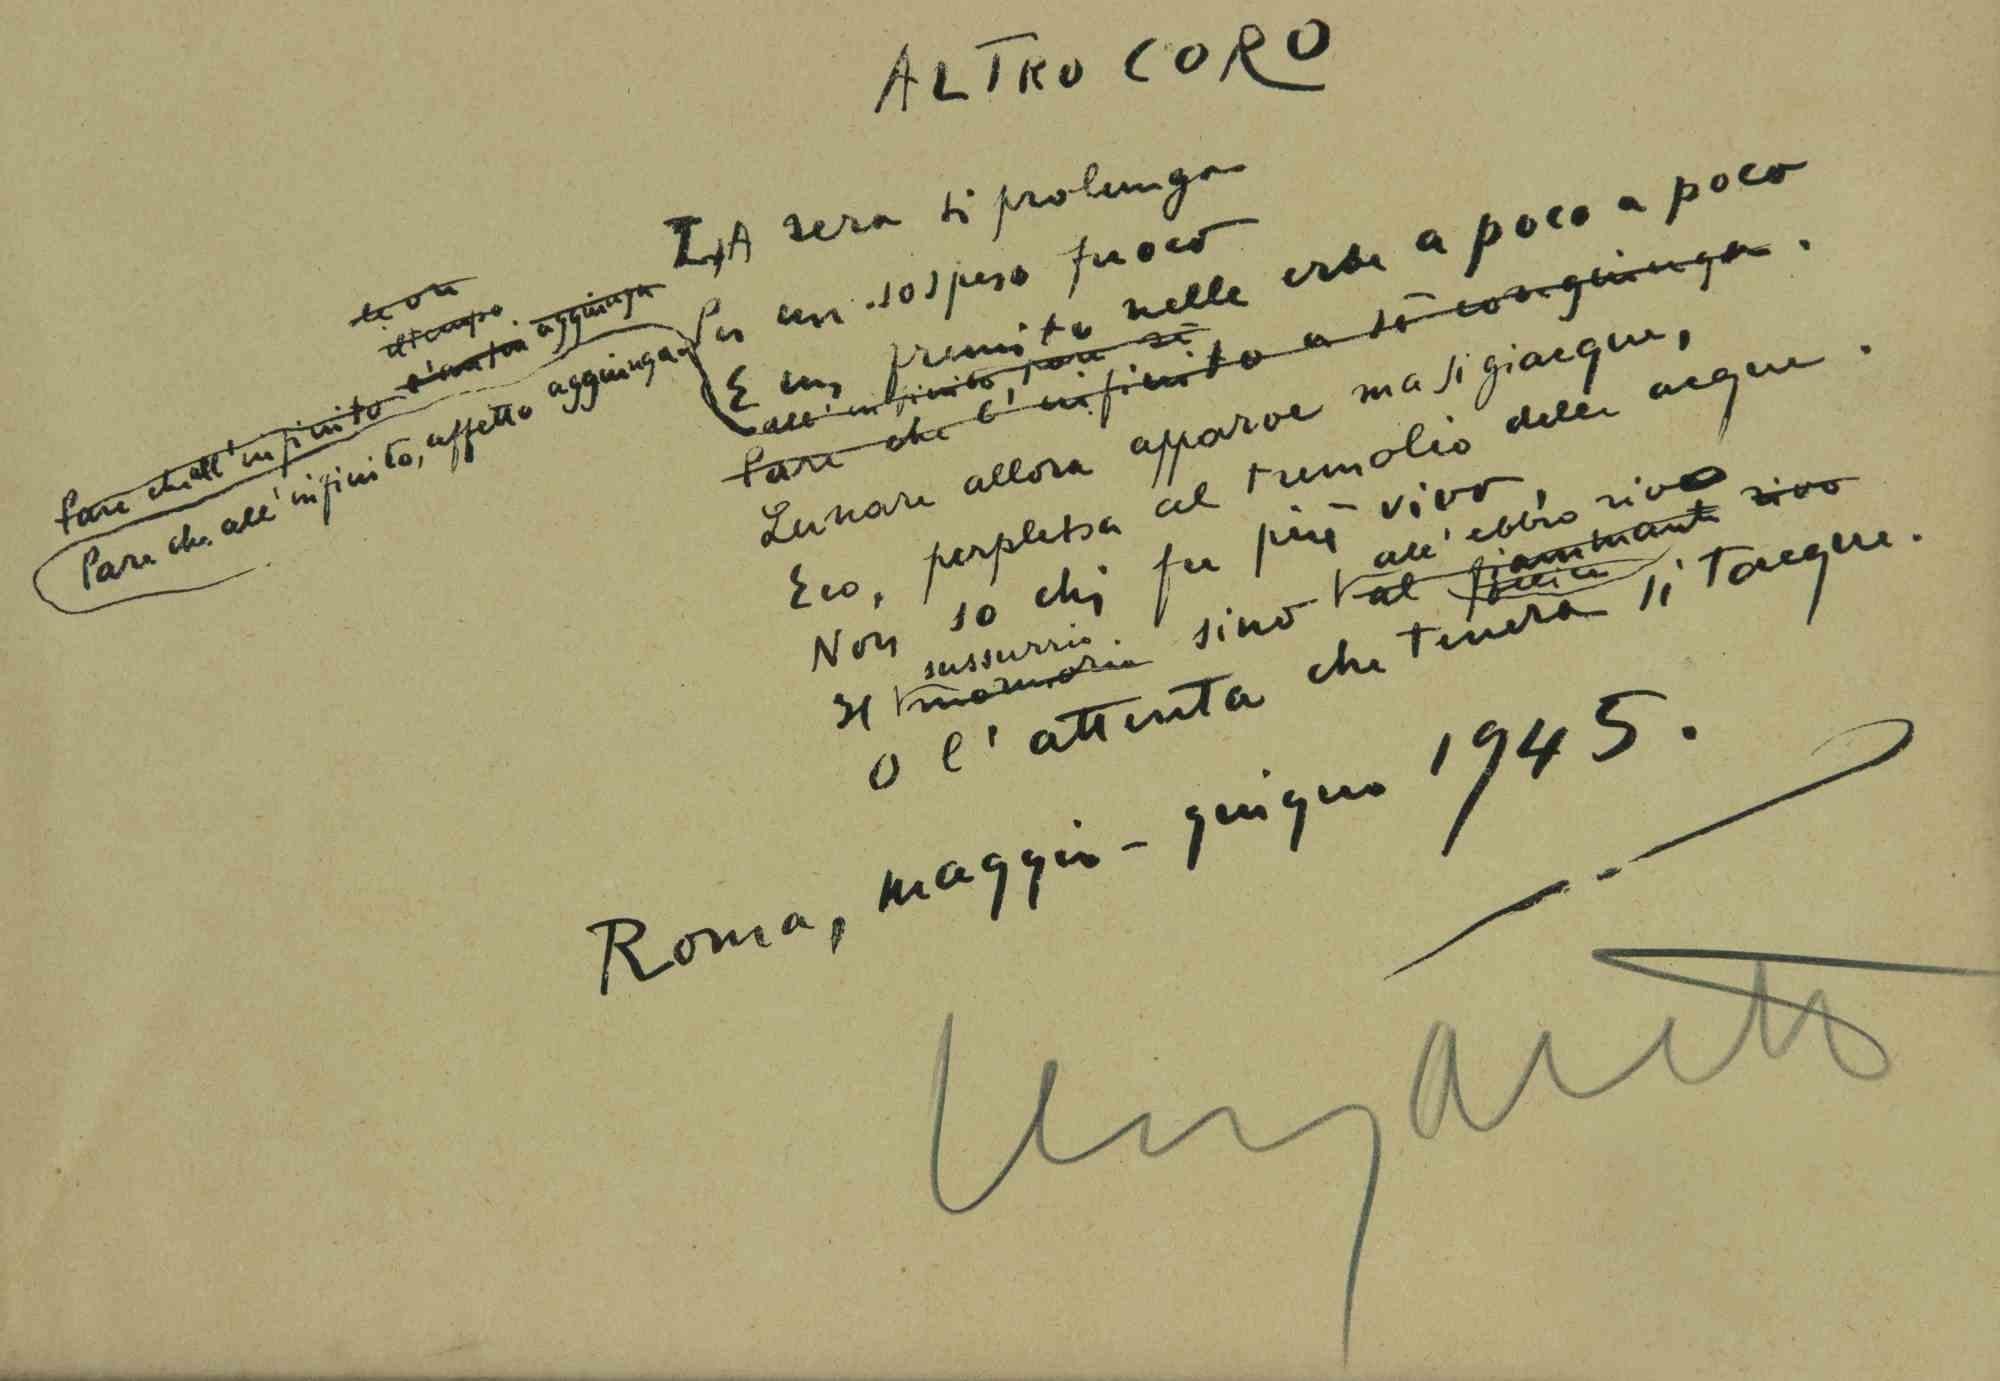 ALTRO CORO
LA sera si prolunga
Per un sospeso fuoco
E un fremito nelle erbe a poco a poco
all'infinito, pare si
Pare che l'infinito a sé congiunga.
il tempo
aggiunga
Pare che all'infinito
Pare che all'infinito, affetto aggiunga
Lunare allora apparve ma si giacque,
Eco, perplessa al tremolio delle acque.
Non so chi fu più vivo,
sussurrio
all'ebbro rivo
Il mormorio sino al fiammante rivo
O l'attenta che tenera si tacque.
Roma, maggio-giugno 1945.
Ungaretti